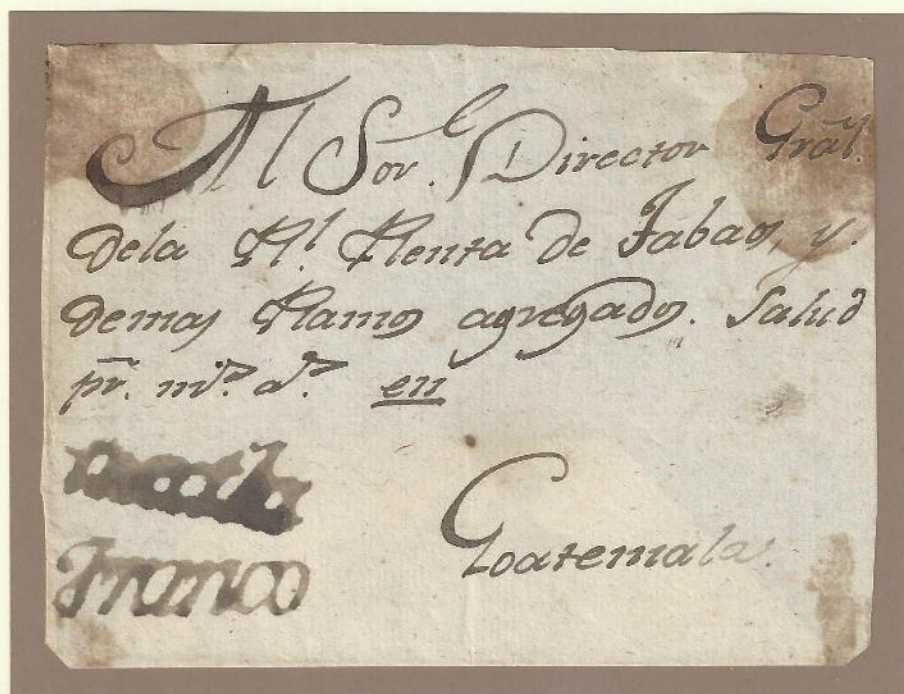 Al Sor. Director Grãl.
dela Rl. Renta de Tabaos, y.
demas Ramos agregados. Salud
pr. ms. as. en
Goatemala.
Franco